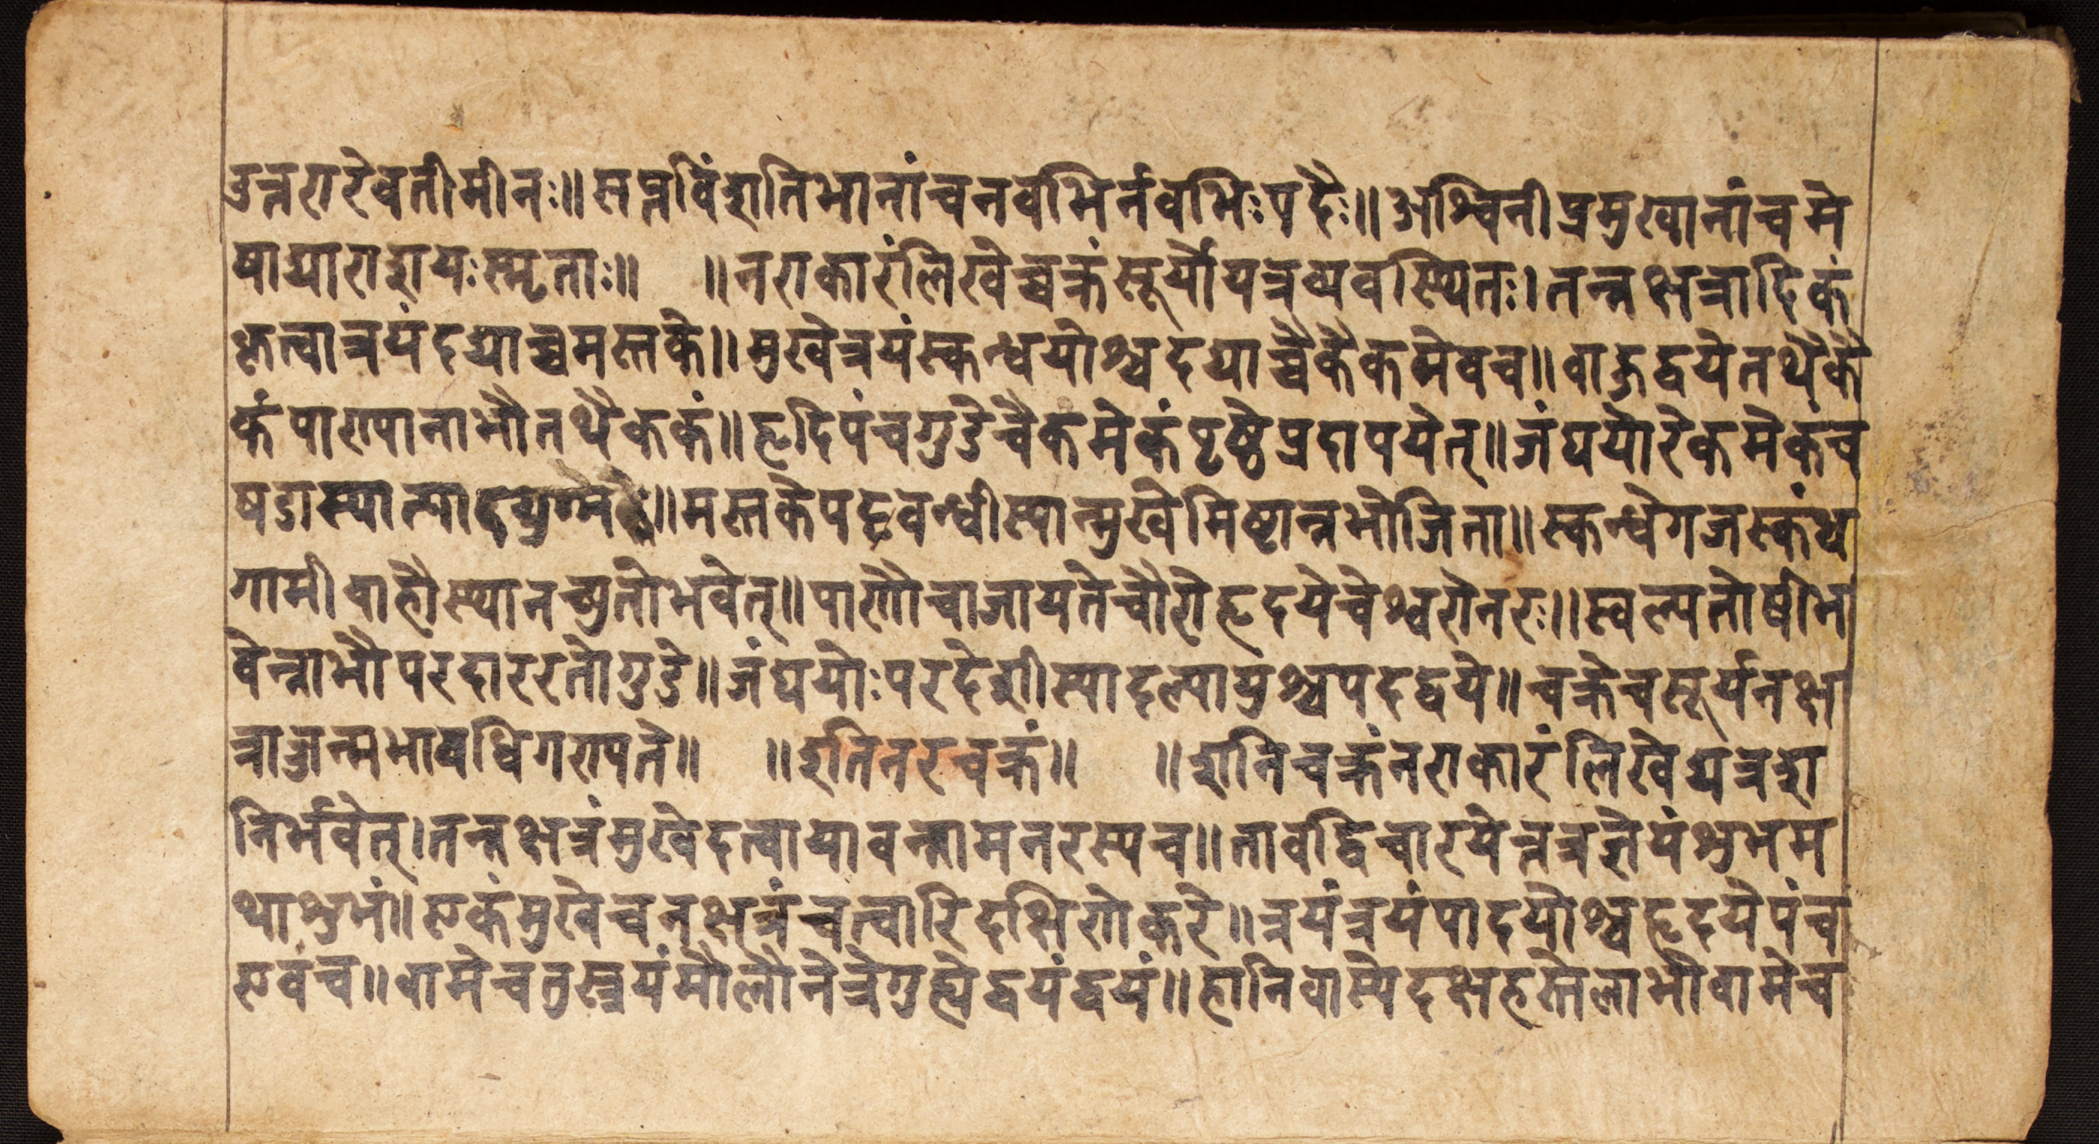 उत्तरारेवतीमीनः॥सप्तविंशतिभानांचनवभिर्नवभिःपदैः॥अश्विनीप्रमुखानांचमे
षाद्याराशयःस्मृताः॥ ॥नराकारंलिखेच्चक्रंसूर्योयत्रव्यवस्थितः।तन्नक्षत्रादिकं
कृत्वात्रयंदद्याच्चमस्तके॥मुखेत्रयंस्कन्धयोश्चदद्याच्चैकैकमेवच॥वाहुद्वयेतथैकै
कंपाणपानाभौतथैककं॥हृदिपंचगुडेचैकमेकंपृष्ठेप्रदापयेत्॥जंघयोरेकमेकंच
षडास्यात्पादयुग्मके॥मस्तकेपट्टवन्धीस्यान्मुखेमिष्टान्नभोजिता॥स्कन्धेगजस्कंध
गामीवाहौस्थानच्युतोभवेत्॥पाणौचाजायतेचौरोहृदयेचेश्वरोनरः॥स्वल्पतोषीभ
वेन्नाभौपरदाररतोगुडे॥जंघयोःपरदेशीस्यादल्पायुश्चपदद्वये॥चक्रेचसूर्यनक्ष
त्राज्जन्मभावधिगणपते॥ ॥इतिनरचक्रं॥ ॥शनिचक्रंनराकारंलिखेद्यत्रशा
निर्भवेत्।तन्नक्षत्रंमुखेदत्वायावन्नामनरस्यच॥तावद्विचारयेत्तत्रज्ञेयंशुभम
थाशुभं॥एकंमुखेचनक्षत्रंचत्वारिदक्षिणेकरे॥त्रयंत्रयंपादयोश्चहृदयेपंच
एवंच॥वामेचतुस्त्रयंमौलौनेत्रेगुह्येद्वयंद्वयं॥हानिवास्येदक्षहस्तेलाभोवामेच